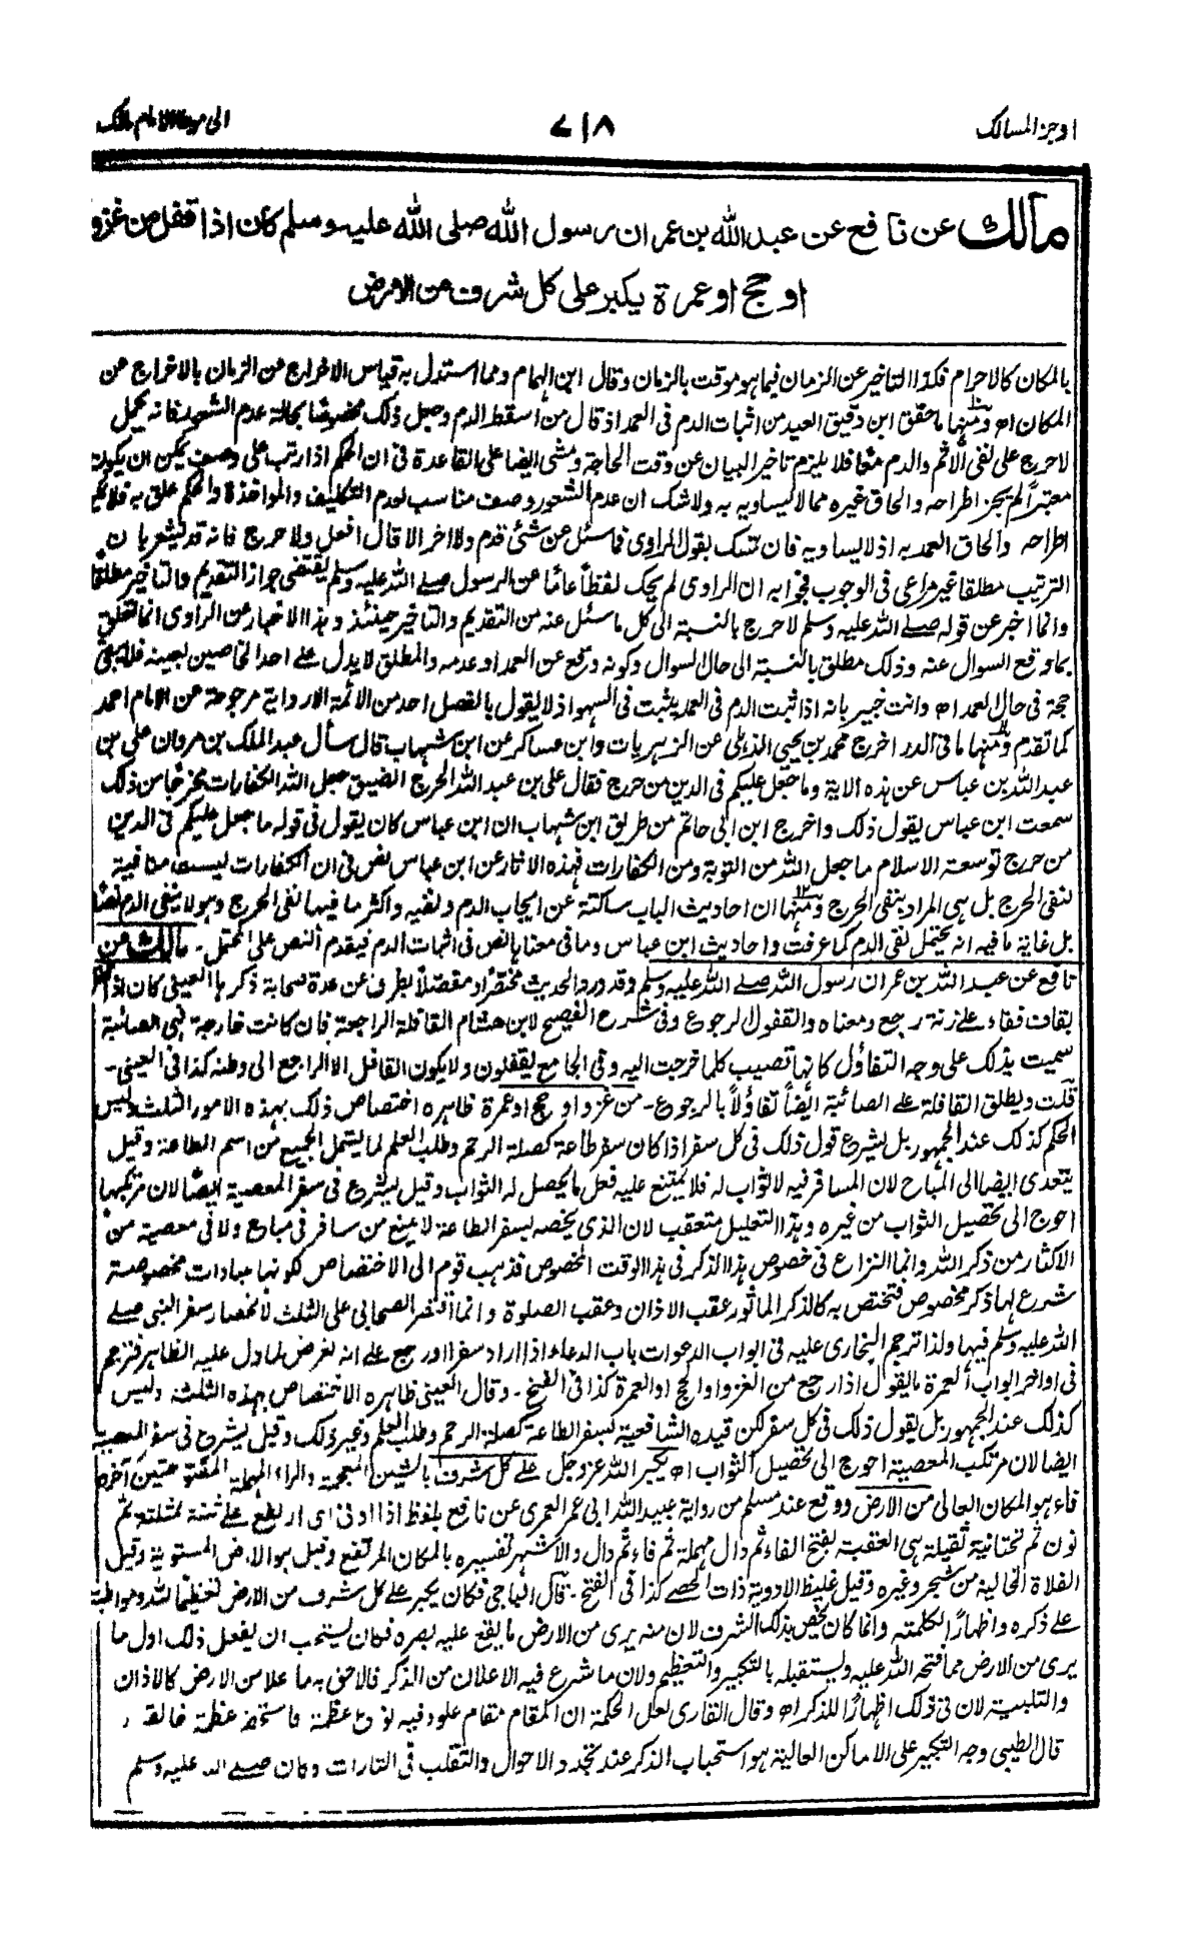 اوجز المسالك
٧١٨
الى موطا الامام مالك
مالك عن نافع عن عبد الله بن عمر ان رسول الله صلى الله عليه وسلم كان اذا قفل من غزو
او حج او عمرة يكبر على كل شرف من الارض
بالمكان كالاحرام فكذا التاخير عن الزمان فيما هو موقت بالزمان وقال ابن الهمام ومما استدل به قياس الاخراج عن الزمان بالاخراج عن
المكان اھ ومنها ما حقق ابن دقيق العيد من اثبات الدم فى العمد اذ قال من اسقط الدم وجعل ذلك مخصوصًا بحالة عدم الشعور فانه يحمل
لا حرج على نفى الاثم والدم معًا فلا يلزم تاخير البيان عن وقت الحاجة ومشى ايضا على القاعدة فى ان الحكم اذا رتب على وصف يمكن ان يكون
معتبرًا لم يجز اطراحه والحاق غيره مما لا يساويه به ولا شك ان عدم الشعور وصف مناسب لعدم التكليف والمواخذة والحكم علق به فلا يمكن
اطراحه والحاق العمد به اذ لا يساويه فان تمسك بقول الراوى فما سئل عن شئ قدم ولا اخر الا قال افعل ولا حرج فانه قد يشعر بان
الترتيب مطلقا غير مراعى فى الوجوب فجوابه ان الراوى لم يحك لفظاً عامًا عن الرسول صلے الله عليه وسلم يقتضى جواز التقديم والتاخير مطلقا
وانما اخبر عن قوله صلے الله عليه وسلم لا حرج بالنسبة الى كل ما سئل عنه من التقديم والتاخير حينئذ وهذا الاخبار عن الراوى انما تعلق
بما وقع السوال عنه وذلك مطلق بالنسبة الى حال السوال وكونه وقع عن العمد او عدمه والمطلق لا يدل على احد الخاصين بعينه فلا يبقى
حجة فى حال العمد اھ وانت خبير بانه اذا ثبت الدم فى العمد يثبت فى السهو اذ لا يقول بالفصل احد من الائمة الا رواية مرجوحة عن الامام احمد
كما تقدم ومنها ما فى الدر اخرج محمد بن يحيى الذهلى عن الزهريات وابن عساكر عن ابن شهاب قال سأل عبد الملك بن مروان على بن
عبد الله بن عباس عن هذه الاية وما جعل عليكم فى الدين من حرج فقال على بن عبد الله الحرج الضيق جعل الله الكفارات مخرجًا من ذلك
سمعت ابن عباس يقول ذلك واخرج ابن ابى حاتم من طريق ابن شهاب ان ابن عباس كان يقول فى قوله ما جعل عليكم فى الدين
من حرج توسعة الاسلام ما جعل الله من التوبة ومن الكفارات فهذه الاثار عن ابن عباس نص فى ان الكفارات ليست منافية
لنفى الحرج بل هى المراد بنفى الحرج ومنها ان احاديث الباب ساكتة عن ايجاب الدم ونفيه واكثر ما فيها نفى الحرج وهو لا ينفى الدم نصًا
بل غاية ما فيه انه يحتمل نفى الدم كما عرفت واحاديث ابن عباس وما فى معناها نص فى اثبات الدم فيقدم النص على المحتمل ۔ مالك عن
نافع عن عبد الله بن عمر ان رسول الله صلے الله عليه وسلم وقد ورد الحديث مختصرًا ومفصلاً بطرق عن عدة صحابة ذكرها العينى كان اذا قفل
بقاف ففاء على زنة رجع ومعناه والقفول الرجوع وفى شرح الفصيح لابن هشام القافلة الراجعة فان كانت خارجة فهى الصائبة
سميت بذلك على وجه التفاؤل كانها تصيب كلما خرجت اليه وفى الجامع يقفلون ولا يكون القافل الا الراجع الى وطنه كذا فى العينى ۔
قلت ويطلق القافلة على الصائبة ايضاً تفاؤلاً بالرجوع ۔ من غزو او حج او عمرة ظاهره اختصاص ذلك بهذه الامور الثلث وليس
الحكم كذلك عند الجمهور بل يشرع قول ذلك فى كل سفر اذا كان سفر طاعة كصلة الرحم وطلب العلم لما يشتمل الجميع من اسم الطاعة وقيل
يتعدى ايضا الى المباح لان المسافر فيه لا ثواب له فلا يمتنع عليه فعل ما يحصل له الثواب وقيل يشرع فى سفر المعصية ايضًا لان مرتكبها
احوج الى تحصيل الثواب من غيره وهذا التعليل متعقب لان الذى يخصه بسفر الطاعة لا يمنع من سافر فى مباح ولا فى معصية من
الاكثار من ذكر الله وانما النزاع فى خصوص هذا الذكر فى هذا الوقت المخصوص فذهب قوم الى الاختصاص لكونها عبادات مخصوصة
شرع لها ذكر مخصوص فتختص به كالذكر الماثور عقب الاذان وعقب الصلوة وانما اقتصر الصحابى على الثلث لانحصار سفر النبى صلے
الله عليه وسلم فيها ولذا ترجم البخارى عليه فى ابواب الدعوات باب الدعاء اذا اراد سفرا او رجع على انه تعرض لما دل عليه الظاهر فترجم
فى اواخر ابواب العمرة ما يقول اذا رجع من الغزو او الحج او العمرة كذا فى الفتح ۔ وقال العينى ظاهره الاختصاص بهذه الثلثة وليس
كذلك عند الجمهور بل يقول ذلك فى كل سفر لكن قيده الشافعية بسفر الطاعة كصلة الرحم وطلب العلم وغير ذلك وقيل يشرع فى سفر المعصية
ايضا لان مرتكب المعصية احوج الى تحصيل الثواب اھ يكبر الله عز وجل على كل شرف بالشين المعجمة والراء المهملة المفتوحتين آخره
فاء هو المكان العالى من الارض ووقع عند مسلم من رواية عبيد الله ابى عمر العمرى عن نافع بلفظ اذا اوفى اى ارتفع على ثنية بمثلثة ثم
نون ثم تحتانية ثقيلة هى العقبة بفتح الفاء ثم دال مهملة ثم فاء ثم دال والاشهر تفسيره بالمكان المرتفع وقيل هو الارض المستوية وقيل
الفلاة الخالية من شجر وغيره وقيل غليظ الاودية ذات الحصے كذا فى الفتح ۔ قال الباجى فكان يكبر على كل شرف من الارض تعظيمًا لله ومواظبة
على ذكره واظهارًا لكلمته وانما كان يخص بذلك الشرف لان منه يرى من الارض ما يقع عليه بصره فكان يستحب ان يفعل ذلك اول ما
يرى من الارض مما فتحه الله عليه ويستقبله بالتكبير والتعظيم ولان ما شرع فيه الاعلان من الذكر فالاحق به ما علا من الارض كالاذان
والتلبية لان فى ذلك اظهارًا للذكر اھ وقال القارى لعل الحكمة ان المقام مقام علو وفيه نوع عظمة فاستحضر عظمة خالقه
قال الطيبى وجه التكبير على الاماكن العالية هو استحباب الذكر عند تجدد الاحوال والتقلب فى التارات وكان صلے الله عليه وسلم